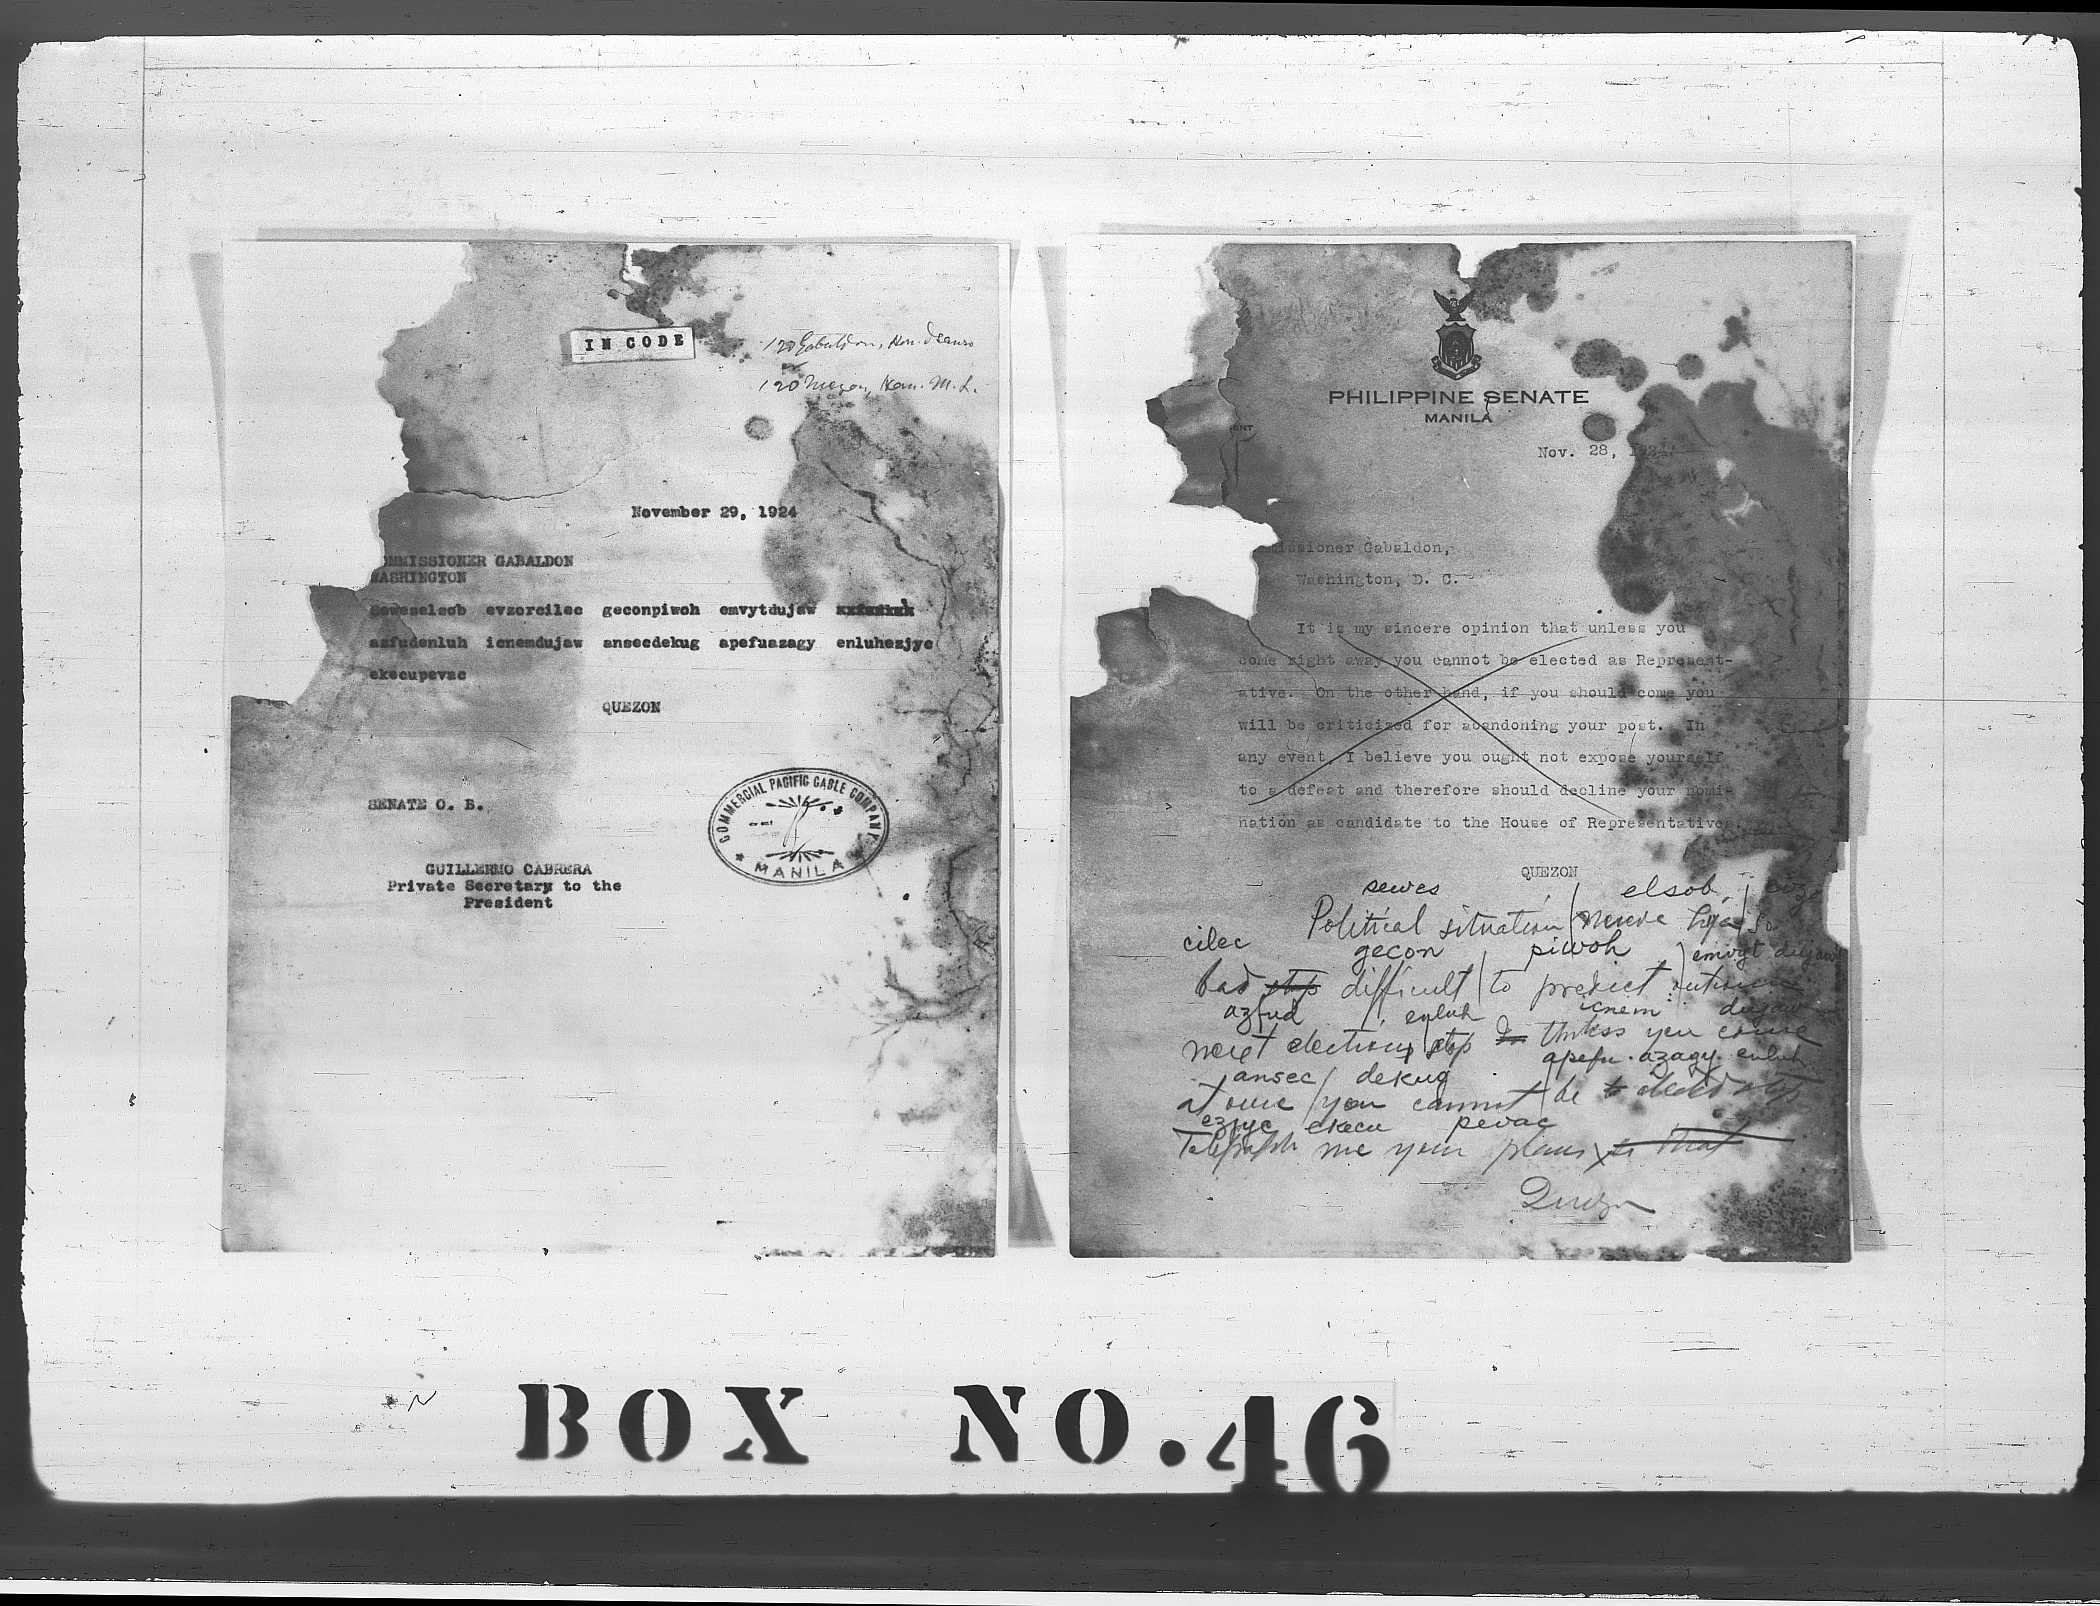 IN CODE
120 Gabaldon, Hon. Isauro
120 Hon. M. L.
November 29, 1924
OMMISSIONER GABALDON
WASHINGTON
Seweselsob evzorcilec geconpiwoh emvytdujaw
azfudenluh icnemdujaw ansecdekug apefuazagy enluhezjyc
ekecupevac
QUEZON
SENATE O. B.
GUILLERMO CABRERA
Private Secretary to the
President
COMMERCIAL PACIFIC CABLE COMPANY
MANILA
PHILIPPINE SENATE
MANILA
ENT
Nov. 28, 1924
missioner Gabaldon,
Washington, D. C.
It is my sincere opinion that unless you
come right away you cannot be elected as Represent-
ative. On the other hand, if you should come you
will be criticized for abandoning your post. In
any event, I believe you ought not expose yourself
to a defeat and therefore should decline your nomi-
nation as candidate to the House of Representatives.
QUEZON
sewes elsob
Political situation
cilec gecon piwoh emvyt dujaw
bad stop difficult to predict outcome
azfud enluh icnem dujaw
next elections stop Unless you come
ansec dekug apefu azagy enluh
at once you cannot be elected stop
ezjyc ekecu pevac
Telegraph me your plans that
Quezon
BOX NO. 46